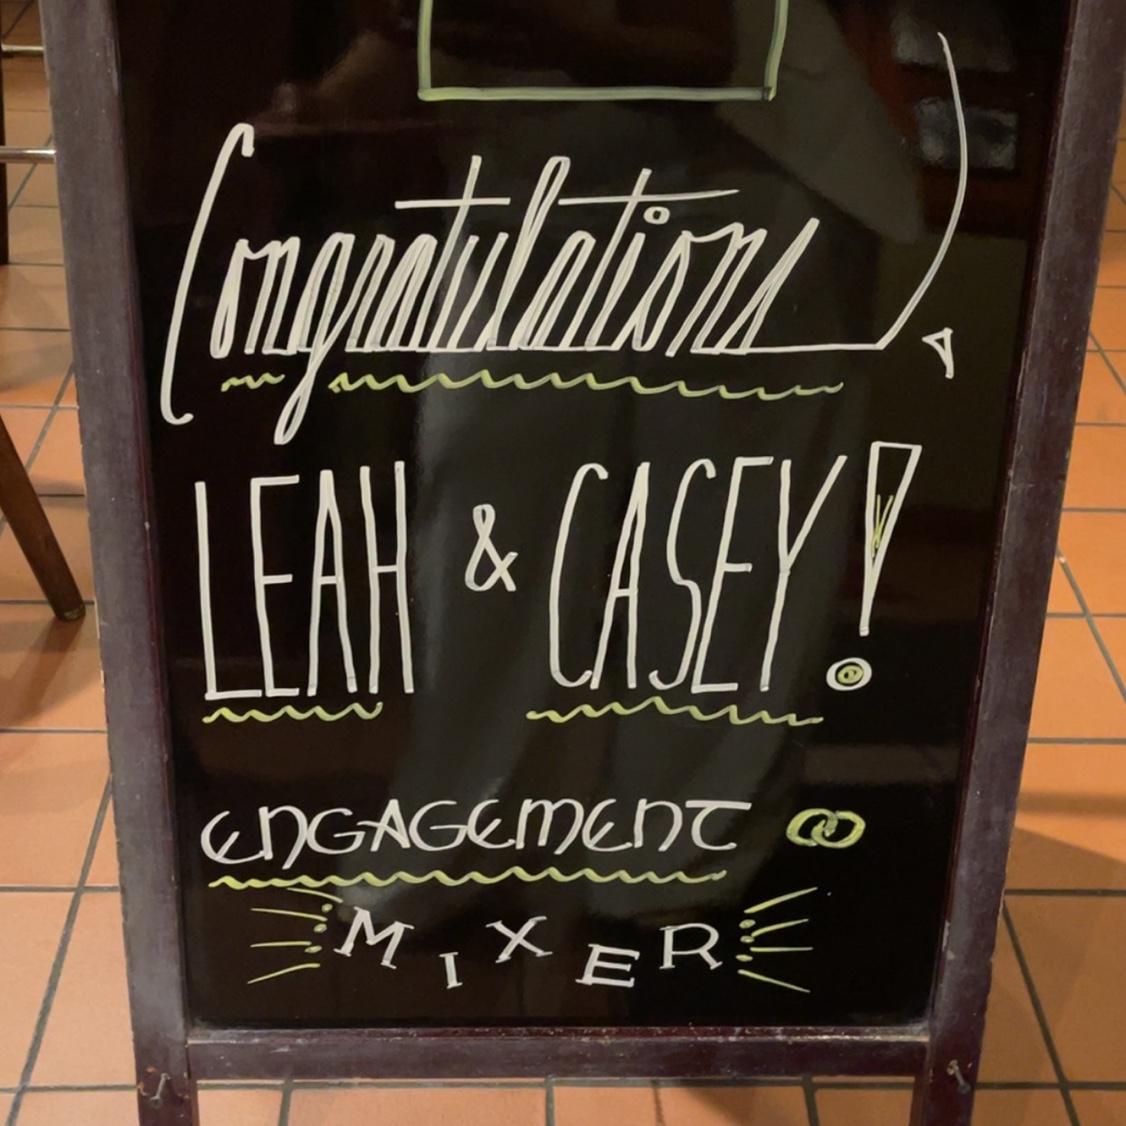 Congratulations,
LEAH & CASEY!
ENGAGEMENT
MIXER